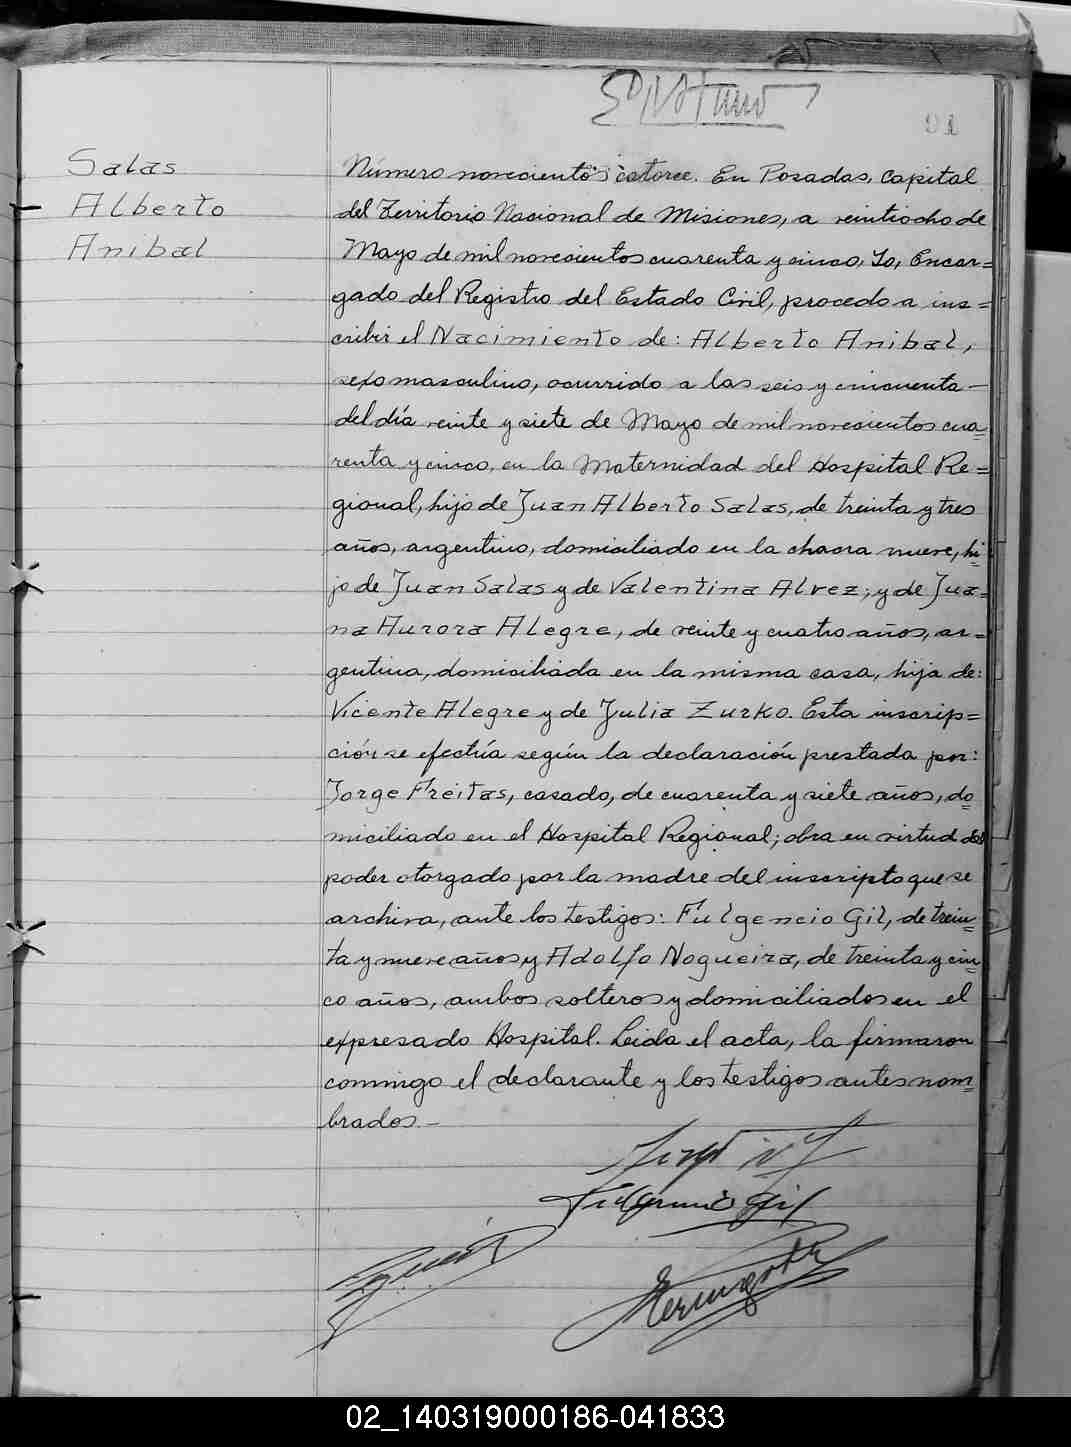 91
Salas
Alberto
Anibal
Número novecientos catorce. En Posadas, Capital
del Territorio Nacional de Misiones, a veintiocho de
Mayo de mil novecientos cuarenta y cinco, Yo, Encar=
gado del Registro del Estado Civil, procedo a ins=
cribir el Nacimiento de: Alberto Anibal,
sexo masculino, ocurrido a las seis y cincuenta—
del día veinte y siete de Mayo de mil novecientos cua=
renta y cinco, en la Maternidad del Hospital Re=
gional, hijo de Juan Alberto Salas, de treinta y tres
años, argentino, domiciliado en la chacra nueve, hi=
jo de Juan Salas y de Valentina Alvez; y de Jua=
na Aurora Alegre, de veinte y cuatro años, ar=
gentina, domiciliada en la misma casa, hija de:
Vicente Alegre y de Julia Zurko. Esta inscrip=
ción se efectúa según la declaración prestada por:
Jorge Freitas, casado, de cuarenta y siete años, do=
miciliado en el Hospital Regional; obra en virtud del
poder otorgado por la madre del inscripto que se
archiva, ante los testigos: Fulgencio Gil, de trein=
ta y nueve años y Adolfo Nogueira, de treinta y cin=
co años, ambos solteros y domiciliados en el
expresado Hospital. Leida el acta, la firmaron
conmigo el declarante y los testigos antes nom=
brados.—
Fulgencio Gil
02_140319000186-041833